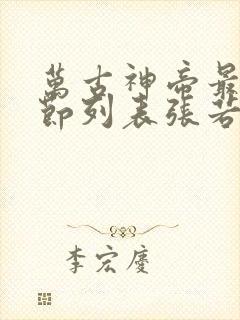 萬古神帝最
節列表張若
李宏慶